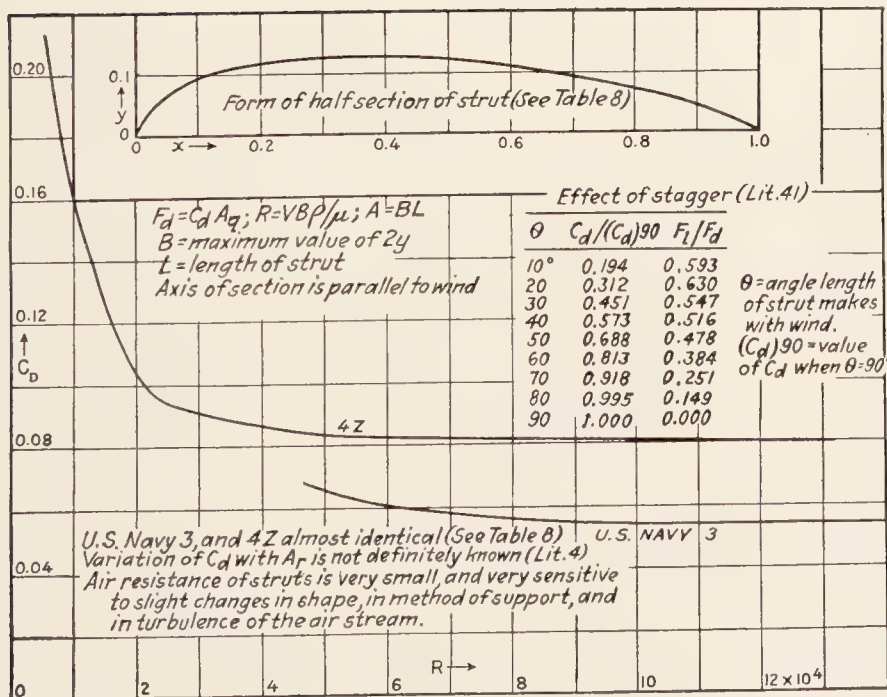 0.20
0.1
y
0
Form of half section of strut (See Table 8)
0 x 0.2 0.4 0.6 0.8 1.0
0.16
F_d=C_d A_q; R=VBρ/μ; A=BL
B=maximum value of 2y
L=length of strut
Axis of section is parallel to wind
Effect of stagger (Lit.41)
θ C_d/(C_d)90 F_l/F_d
10° 0.194 0.593
20 0.312 0.630
30 0.451 0.547
40 0.573 0.516
50 0.688 0.478
60 0.813 0.384
70 0.918 0.251
80 0.995 0.149
90 1.000 0.000
θ=angle length
of strut makes
with wind.
(C_d)90=value
of C_d when θ=90°
0.12
C_D
4Z
0.08
U.S. Navy 3, and 4Z almost identical (See Table 8)
U.S. NAVY 3
Variation of C_d with A_r is not definitely known (Lit.4)
Air resistance of struts is very small, and very sensitive
to slight changes in shape, in method of support, and
in turbulence of the air stream.
0.04
R
0 2 4 6 8 10 12 × 10⁴